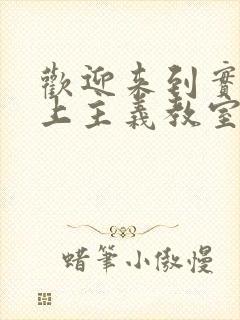 歡迎来到實
上主義教室
蜡筆小傲慢